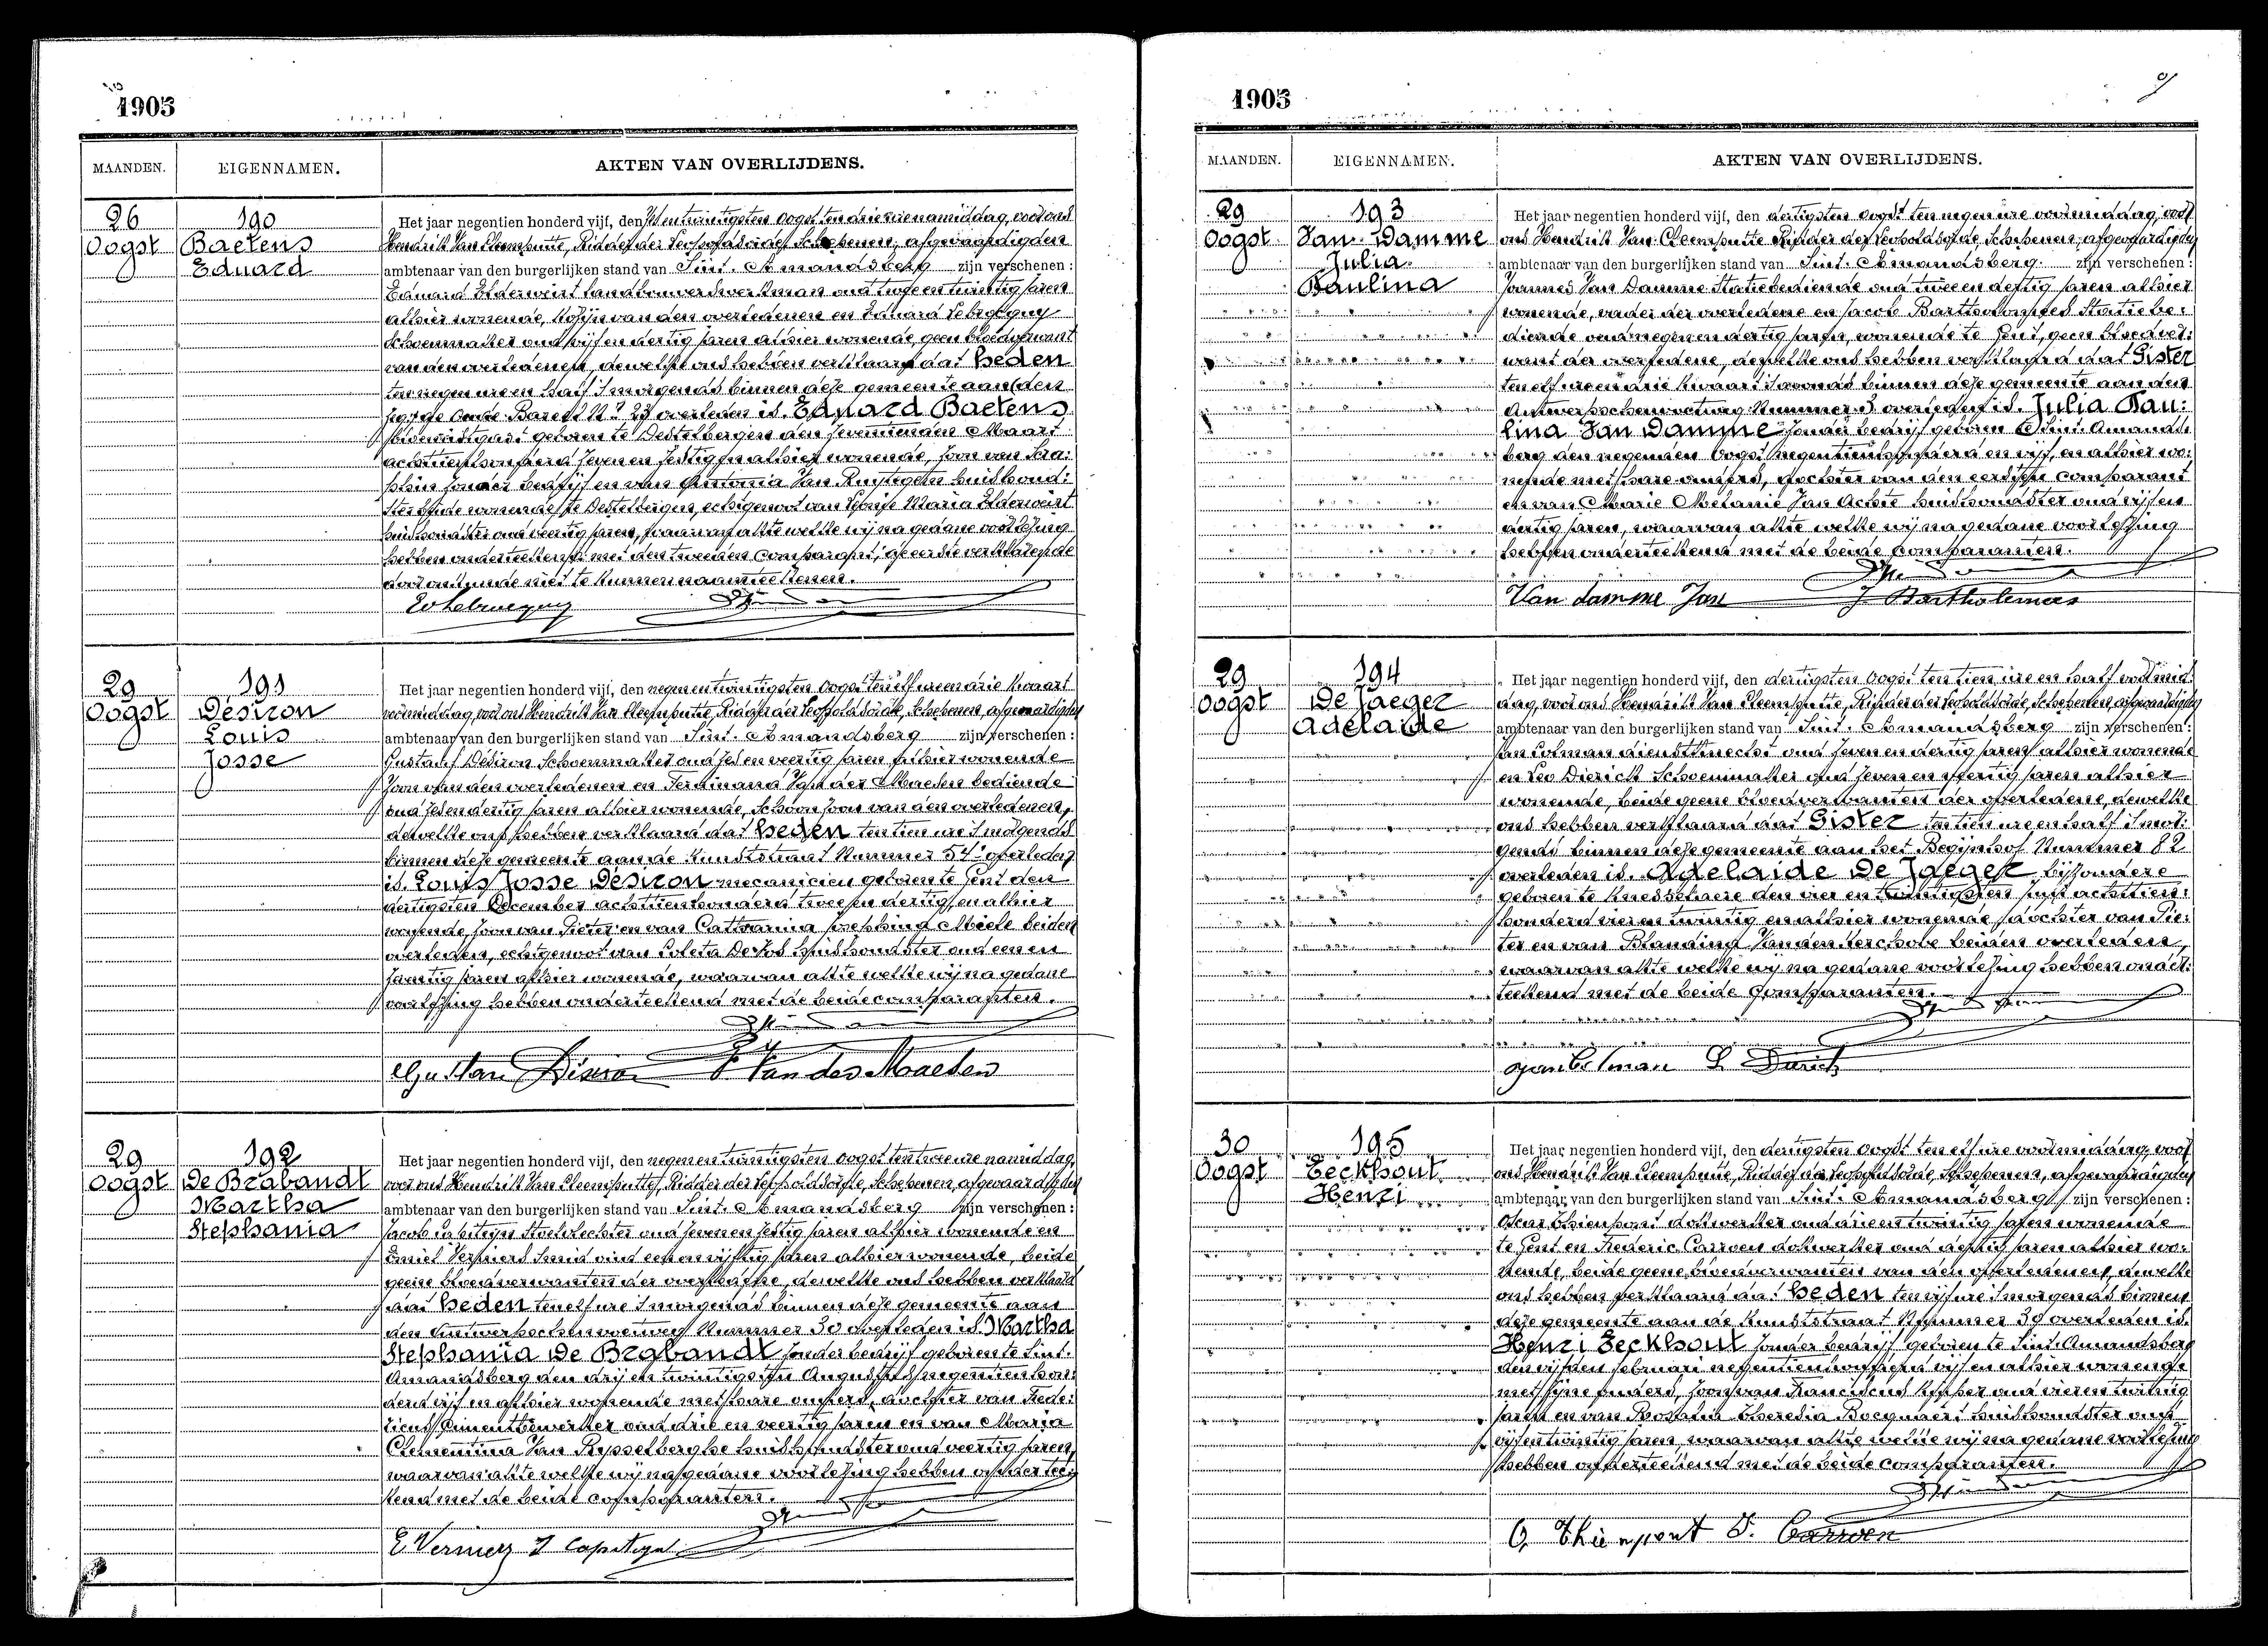 1905
MAANDEN. EIGENNAMEN. AKTEN VAN OVERLIJDENS.
26 190
Oogst Baetens
Eduard
Het jaar negentien honderd vijf, den oogst ten drie ure namiddag, voor ons
Hendrik Van Cleemputte, Ridder der Leopoldsorde, Schepenen, afgevaardigden
ambtenaar van den burgerlijken stand van Sint. Amandsberg zijn verschenen:
Eduard Elderweirt landbouwerswerkman oud twee en twintig jaren
alhier wonende, kozijn van den overledenen en Eduard
Schoenmaker oud vijf en dertig jaren alhier wonende geen bloedverwant
van den overledenen, dewelke ons hebben verklaard dat heden
ten negen ure en half 's morgends binnen deze gemeente aan den
N° 23 overleden is Eduard Baetens
geboren te Destelbergen den zeventienden Maart
achttien honderd zeven en zestig en alhier wonende, zoon van Sera:
phin zonder bedrijf en van Van huishoud:
ster beide wonende te Destelbergen, echtgenoot van Maria Elderweirt
huishoudster oud veertig jaren, waarvan akte welke wij na gedane voorlezing
hebben onderteekend met den tweeden comparant, de eerste verklarende
niet te kunnen naamteekenen.
29 191
Oogst Désiron
Louis
Josse
Het jaar negentien honderd vijf, den negen en twintigsten Oogst ten elf ure en drie kwaart
voormiddag, voor ons Hendrik Van Cleemputte, Ridder der Leopoldsorde, Schepenen, afgevaardigden
ambtenaar van den burgerlijken stand van Sint. Amandsberg zijn verschenen:
Gustaaf Désiron Schoenmaker oud zes en veertig jaren alhier wonende
zoon van den overledenen en Ferdinand Van der Maeden bediende
oud zes en dertig jaren alhier wonende, schoonzoon van den overledenen,
dewelke ons hebben verklaard dat heden ten tien ure 's morgends
binnen deze gemeente aan de Kunststraat Nummer 54 overleden
is Louis Josse Désiron mecanicien geboren te Gent den
dertigsten December achttien honderd twee en dertig en alhier
wonende, zoon van Pieter en van Catharina Josephina Miele beiden
overleden, echtgenoot van Coleta De Vos huishoudster oud een en
jaren alhier wonende, waarvan akte welke wij na gedane
voorlezing hebben onderteekend met de beide comparanten.
Gustav Désiron F Van der Maeden
29 192
Oogst De Brabandt
Martha
Stephania
Het jaar negentien honderd vijf, den negen en twintigsten oogst ten twee ure namiddag,
voor ons Hendrik Van Cleemputte, Ridder der Leopoldsorde, Schepenen, afgevaardigden
ambtenaar van den burgerlijken stand van Sint. Amandsberg zijn verschenen:
Jacob Stoelvlechter oud zeven en zestig jaren alhier wonende en
Emiel Smid oud een en vijftig jaren alhier wonende, beide
geene bloedverwanten der overledene, dewelke ons hebben verklaard
dat heden ten elf ure 's morgends binnen deze gemeente aan
den Antwerpschensteenweg Nummer 30 overleden is Martha
Stephania De Brabandt zonder bedrijf geboren te Sint.
Amandsberg den drij en twintigsten Augustus negentien hon:
derd vijf en alhier wonende met hare ouders, dochter van Frede:
ricus Cimentbewerker oud drie en veertig jaren en van Maria
Clementina Van Rysselberghe huishoudster oud veertig jaren,
waarvan akte welke wij na gedane voorlezing hebben onderteen
kend met de beide comparanten.
1905
MAANDEN. EIGENNAMEN. AKTEN VAN OVERLIJDENS.
29 193
Oogst Van Damme
Julia
Paulina
Het jaar negentien honderd vijf, den dertigsten oogst ten negen ure voormiddag, voor
ons Hendrik Van Cleemputte Ridder der Leopoldsorde, Schepenen, afgevaardigden
ambtenaar van den burgerlijken stand van Sint. Amandsberg. zijn verschenen:
Joannes Van Damme Statiebediende oud twee en dertig jaren alhier
wonende, vader der overledene en Jacob Bartholomees Statie be:
diende oud negen en dertig jaren, wonende te Gent, geen bloedver:
want der overledene, dewelke ons hebben verklaard dat Gister
ten elf ure en drie kwaart 's avonds binnen deze gemeente aan den
Nummer 3 overleden is Julia Pau:
lina Van Damme zonder bedrijf geboren te Sint. Amands.
berg den negenden Oogst negentien honderd en vijf, en alhier wo:
nende met hare ouders, dochter van den eersten comparant
en van Marie Melanie Van Acker huishoudster oud vijf en
dertig jaren, waarvan akte welke wij na gedane voorlezing
hebben onderteekend met de beide comparanten.
Van damme Jan J Bartholomees
29 194
Oogst De Jaeger
Adelaide
Het jaar negentien honderd vijf, den dertigsten Oogst ten tien ure en half voormid:
dag, voor ons Hendrik Van Cleemputte, Ridder der Leopoldsorde, Schepenen, afgevaardigden
ambtenaar van den burgerlijken stand van Sint. Amandsberg zijn verschenen:
Jan Colman dienstknecht oud zeven en dertig jaren alhier wonende
en Leo Dierick Schoenmaker oud zeven en veertig jaren alhier
wonende, beide geene bloedverwanten der overledene, dewelke
ons hebben verklaard dat Gister ten tien ure en half 's mor:
gends binnen deze gemeente aan het Begijnhof Nummer 82
overleden is Adelaide De Jaeger bijzondere
geboren te Knesselaere den vier en twintigsten juli achttien:
honderd vier en twintig en alhier wonende, dochter van Pie:
ter en van Blandina Van den Kerchove beiden overleden,
waarvan akte welke wij na gedane voorlezing hebben onder:
teekend met de beide comparanten.
Jan Colman L Dierick
30 195
Oogst Eeckhout
Henri
Het jaar negentien honderd vijf, den dertigsten Oogst ten elf ure voormiddag, voor
ons Hendrik Van Cleemputte, Ridder der Leopoldsorde, Schepenen, afgevaardigden
ambtenaar van den burgerlijken stand van Sint. Amandsberg zijn verschenen:
Oscar Thienpont dokwerker oud drie en twintig jaren wonende
te Gent en Frederic Carroen dokwerker oud dertig jaren alhier wo:
nende, beide geene bloedverwanten van den overledenen, dewelke
ons hebben verklaard dat heden ten vijf ure 's morgends binnen
deze gemeente aan de Kunststraat Nummer 39 overleden is
Henri Eeckhout zonder bedrijf geboren te Sint. Amandsberg
den vijfden februari negentien honderd vijf en alhier wonende
met zijne ouders, zoon van Franciscus oud vier en twintig
jaren en van Rosalia Theresia Bocquaert huishoudster oud
vijf en twintig jaren, waarvan akte welke wij na gedane voorlezing
hebben onderteekend met de beide comparanten.
O. Thienpont F. Carroen